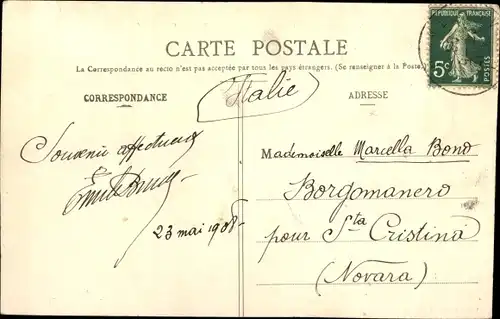 CARTE POSTALE
La Correspondance au recto n'est pas acceptée par tous les pays étrangers. (Se renseigner à la Poste)
CORRESPONDANCE
Italie
ADRESSE
REPUBLIQUE FRANÇAISE
5c
Souvenir affectueux
23 mai 1908
Mademoiselle Marcella Bono
Borgomanero
pour Sta Cristina
(Novara)